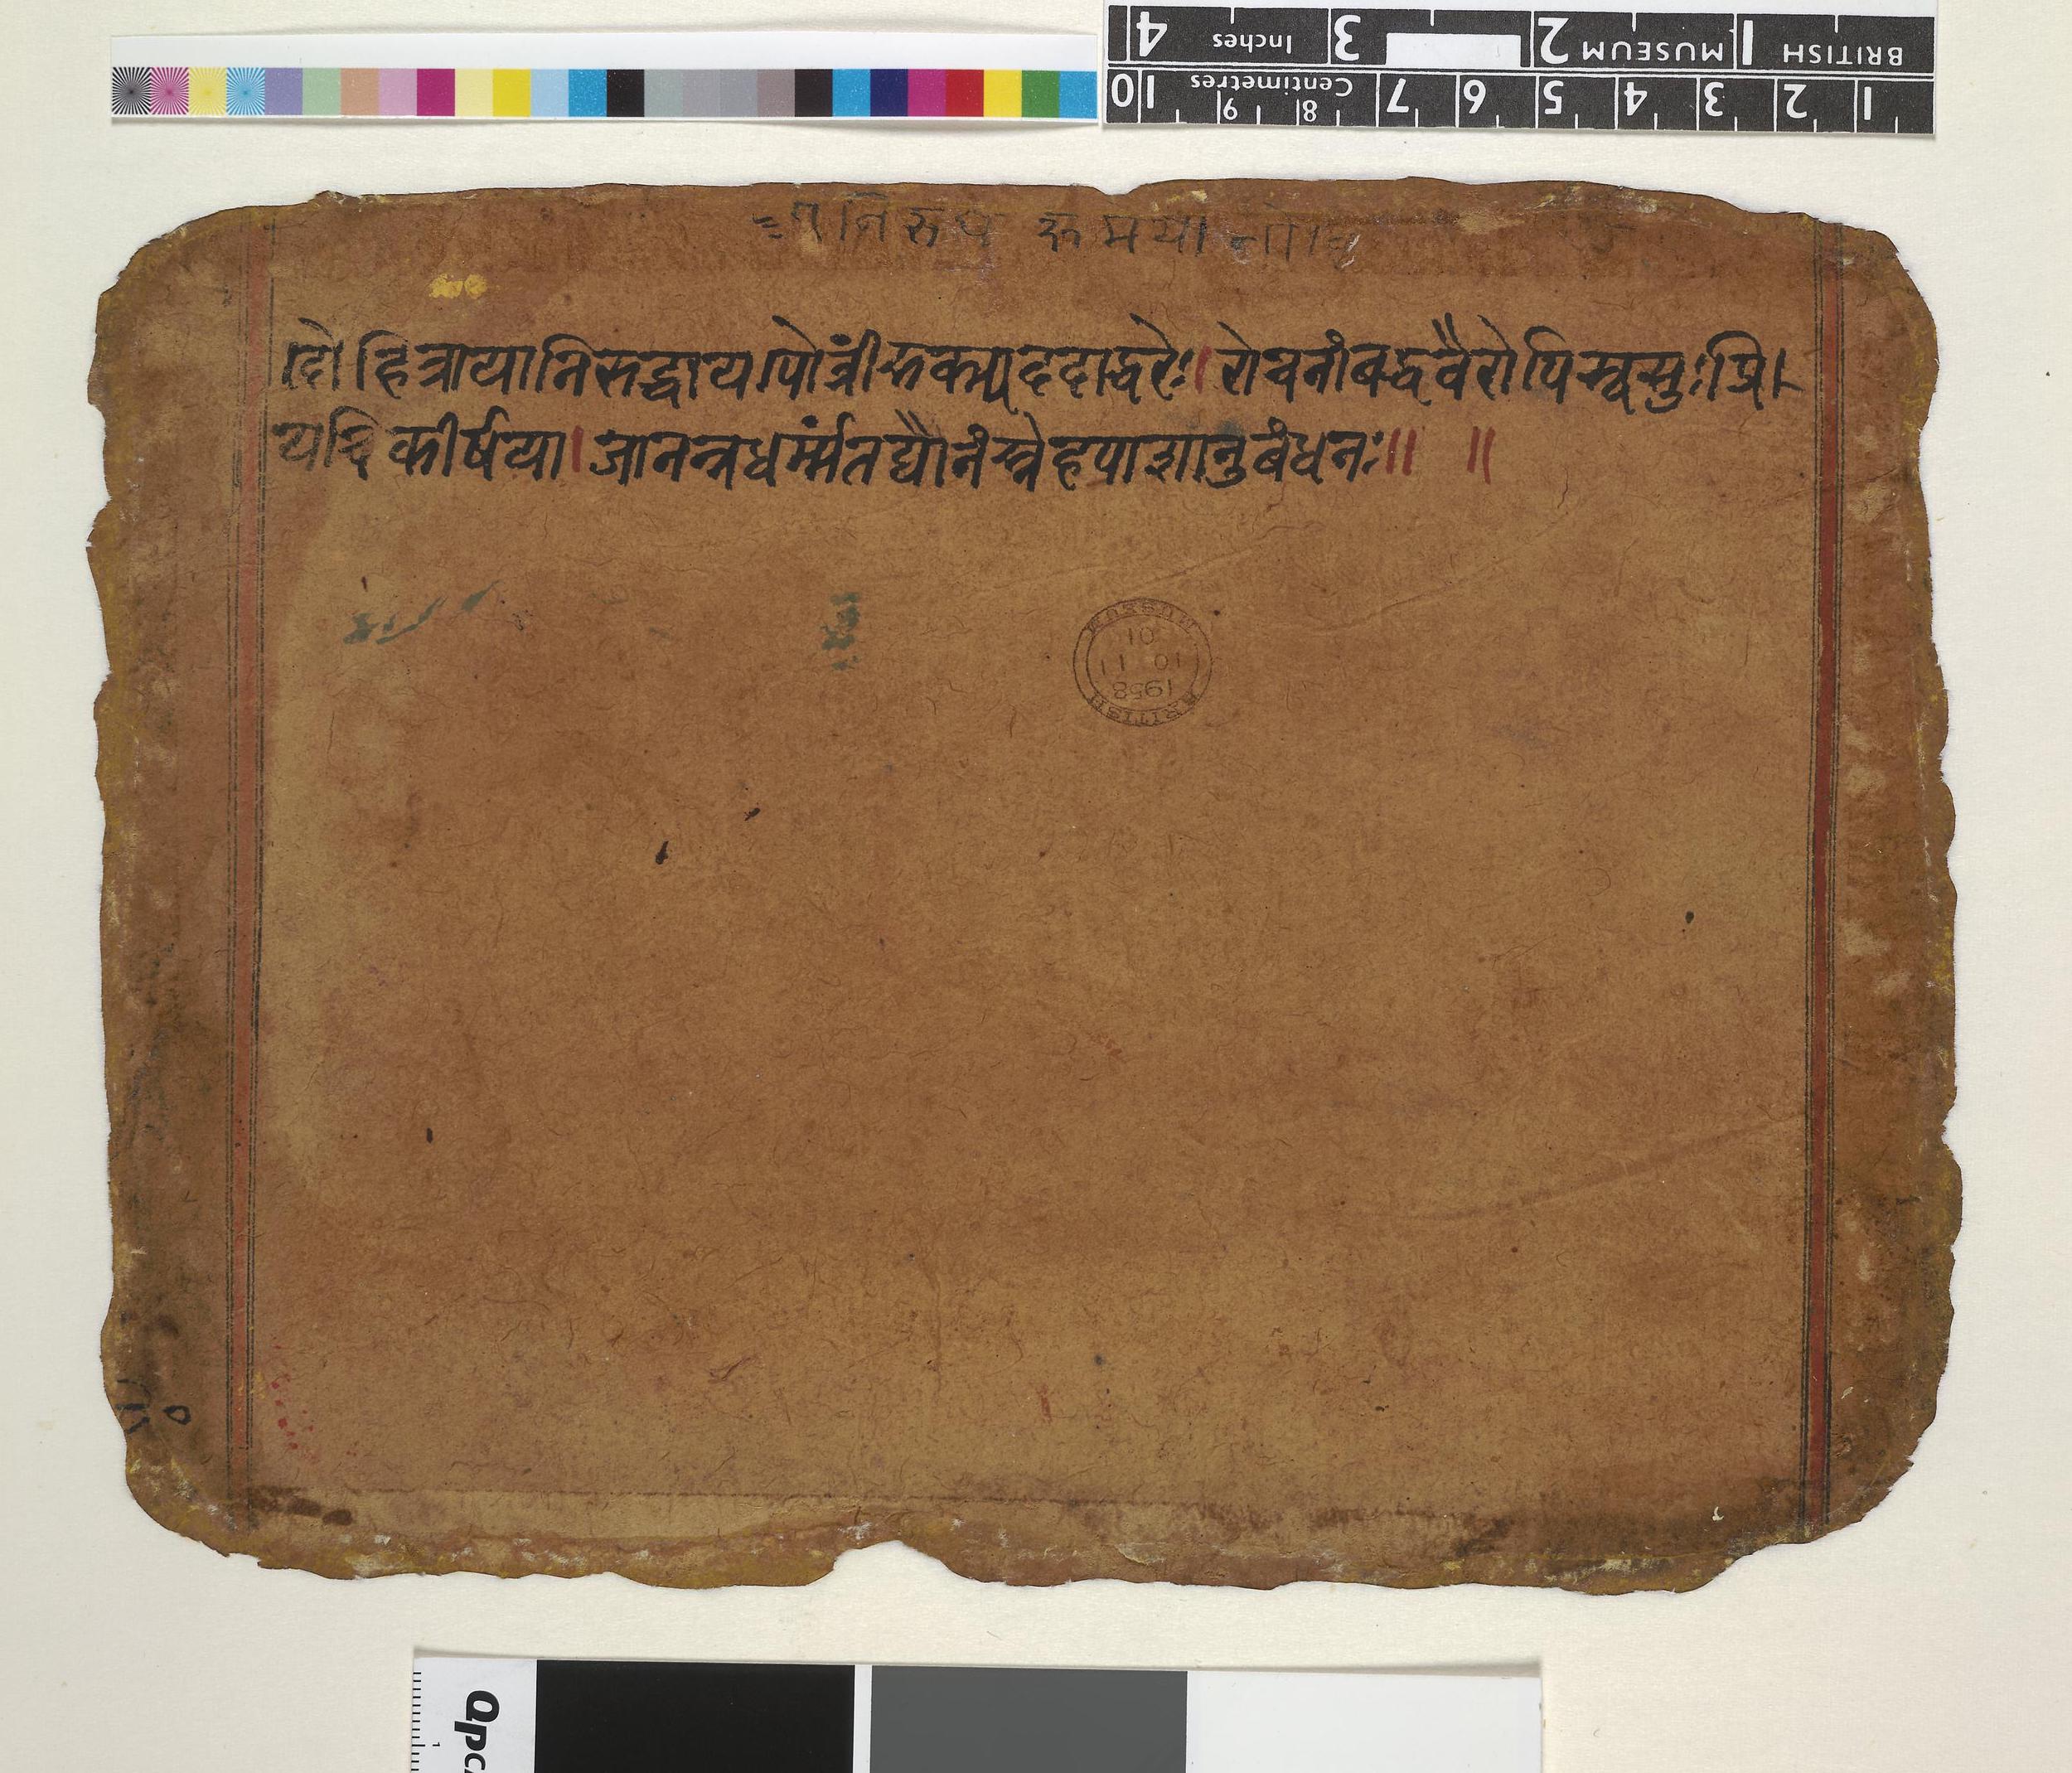 BRITISH MUSEUM Inches 1 2 3 4
Centimetres 1 2 3 4 5 6 7 8 9 10
दौहित्रायानिरुद्धायपौत्रींरुक्म्यददाद्धरेः। रोचनांबद्धवैरोपिस्वसुःप्रि
यचिकीर्षया।जानन्नधर्म्मंतद्यौनंस्नेहपाशानुबंधनः॥ ॥
BRITISH MUSEUM
1958
10 11
01